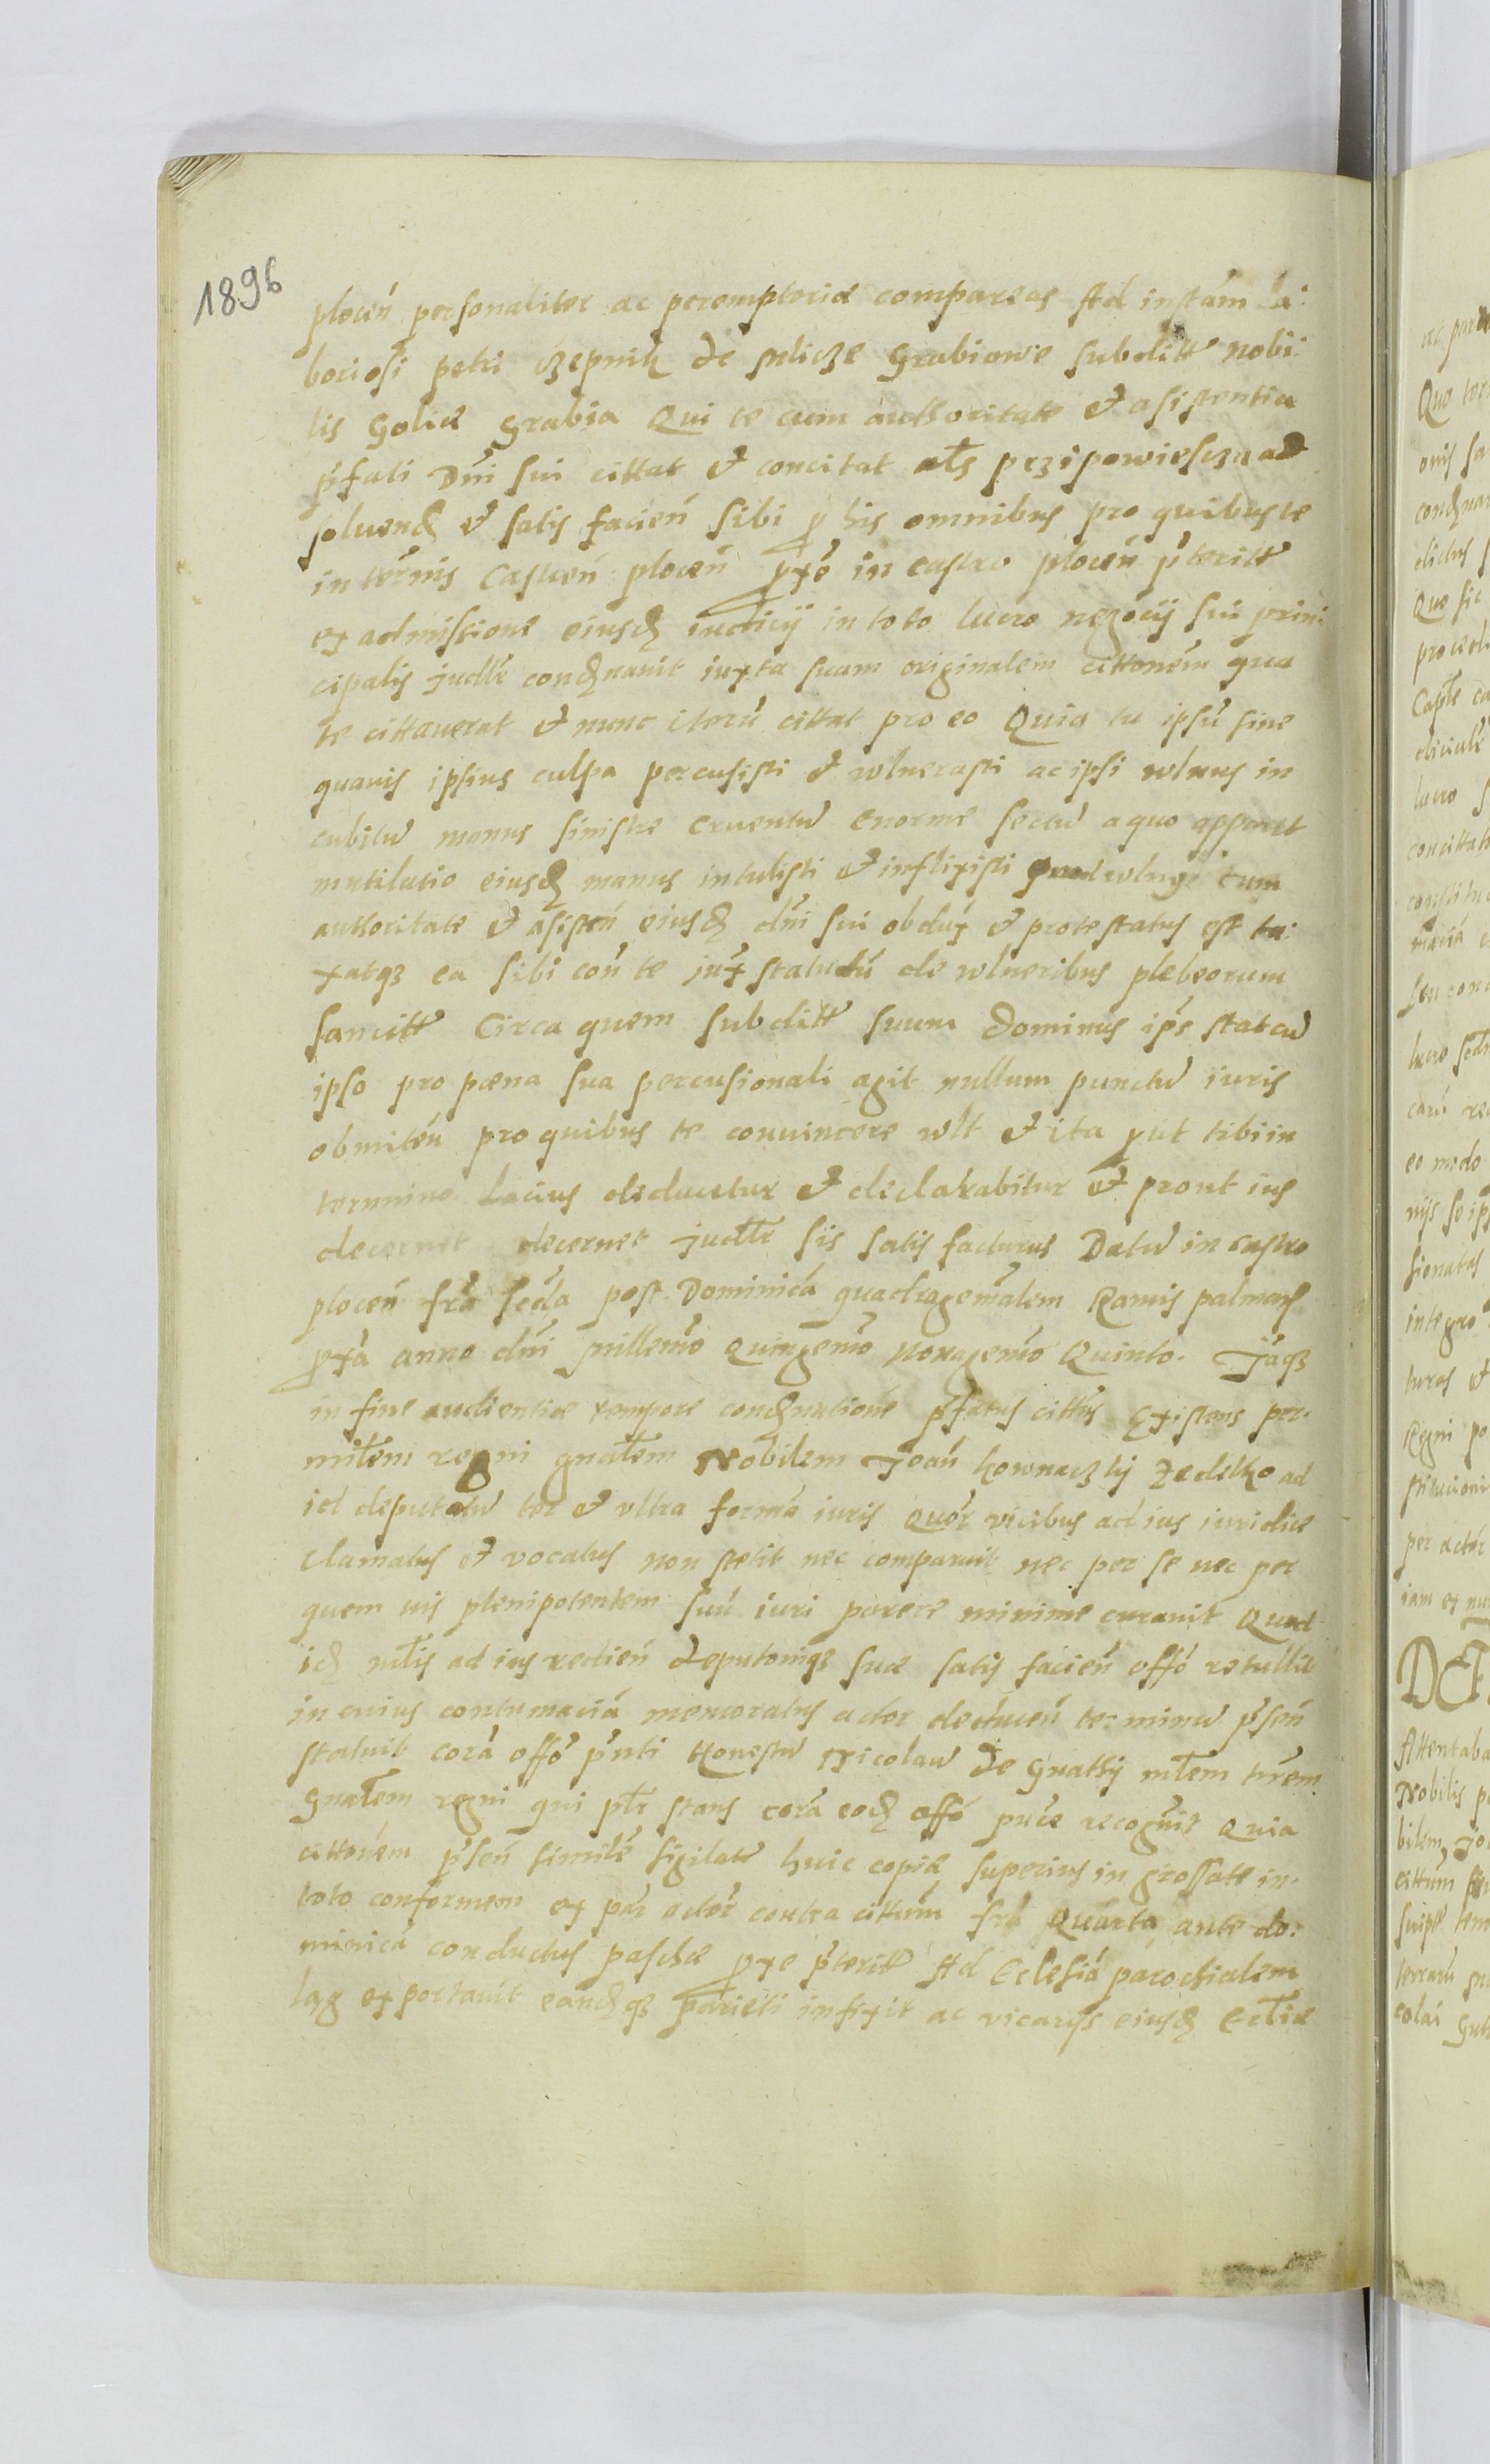 1896
plocen̄ personaliter ac peremptoriæ compareas Ad instam̄ La:
boriosi petri czepnik de milicze Grabiowe subditt nobi:
lis Goliæ Grabia Qui te cum authoritate et asistentia
p̄fati Dn̄i sui cittat et concitat al̄s przipowiescza ad
soluend et satis facien̄ sibi p his omnibus pro quibus te
in term̄is Castren̄ plocen̄ pxe in castro plocen̄ p̄teritt
ex admissione eiusd iudicij in toto lucro negocij sui prin:
cipalis judlr condnauit iuxta suam originalem cittonem̄ qua
te cittauerat et nunc iterū cittat pro eo Quia tu ipsū sine
quauis ipsius culpa percusisti et wlnerasti ac ipsi wlnus in
cubitū manus sinistre cruentū enorme sectū a quo apparet
mutilatio eiusd manus intulisti et inflixisti quod wlnus cum
authoritate et asisten̄ eiusd dn̄i sui obdux et protestatus est ta:
xatqz ea sibi con̄ te iux statutū de wlneribus plebeorum
sancitt Circa quem subditt suum Dominus ip̄s statū
ipso pro pœna sua percusionali agit nullum punctū iuris
obmiten̄ pro quibus te conuincere wlt et ita put tibi in
termino Lacius deducetur et declarabitur et prout ius
decernet decernet judlr sis satis facturus Datū in castro
plocen̄ fr̄a sc̄da post Dominicā quadragem̄alem Ramis palmar
pxā anno dn̄i millem̄o Quingem̄o Nonagem̄o Quinto. Jāqz
in fine audientiæ tempore condnationē p̄fatus cittūs Existens per
mil̄em regni gnal̄em Nobilem Joan̄ kownaczkij Zedelko ad
id deputatū ter et vltra formā iuris quor̄ vicibus ad ius iuridicæ
clamatus et vocatus non stetit nec comparuit nec per se nec per
quem uis plenipotentem suū iuri parere minime curauit Quod
id ml̄is ad ius redien̄ deputoniqz suæ satis facien̄ offō retullit
in cuius contumaciā memoratus actor deducen̄ terminū p̄sen̄
statuit corā offō p̄nti Honestū Nicolaū de Gualthij ml̄em trēm
Gnal̄em regni qui pl̄r stans corā eod offō pn̄ce recognit Quia
cittonem̄ p̄sen̄ similē sigilatt huic copiæ superius in grossate in
toto conformem ex par actor̄ contra cittum̄ fr̄a Quarta ante do:
minicā conductus paschæ pxe p̄teritt Ad Eclesiā parochialem
Lag exportauit eandqz parieti infixit ac vicarijs eiusd Ecl̄iæ